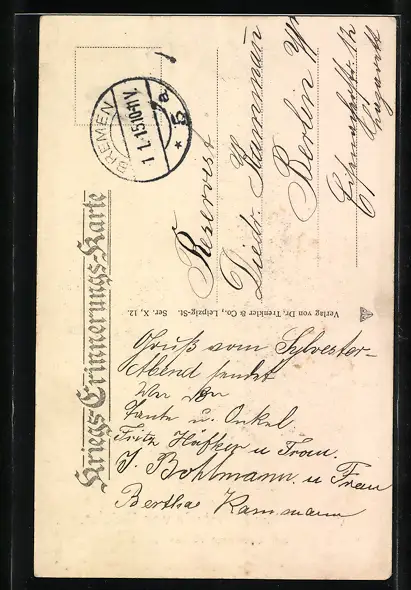 Kriegs-Erinnerungs-Karte
BREMEN
1.1.15.10-11V.
* 5a *
Reservist
Diedr. Kammann
Berlin
Verlag von Dr. Trenkler & Co., Leipzig-St. Ser. X, 12.
Gruß vom Sylvester-
Abend sendet
Tante u. Onkel
Fritz Häfker u Frau.
J. Bohlmann u Frau
Bertha Kammann